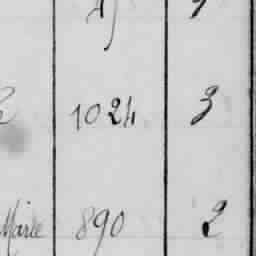 1024 3
Marie 890 2